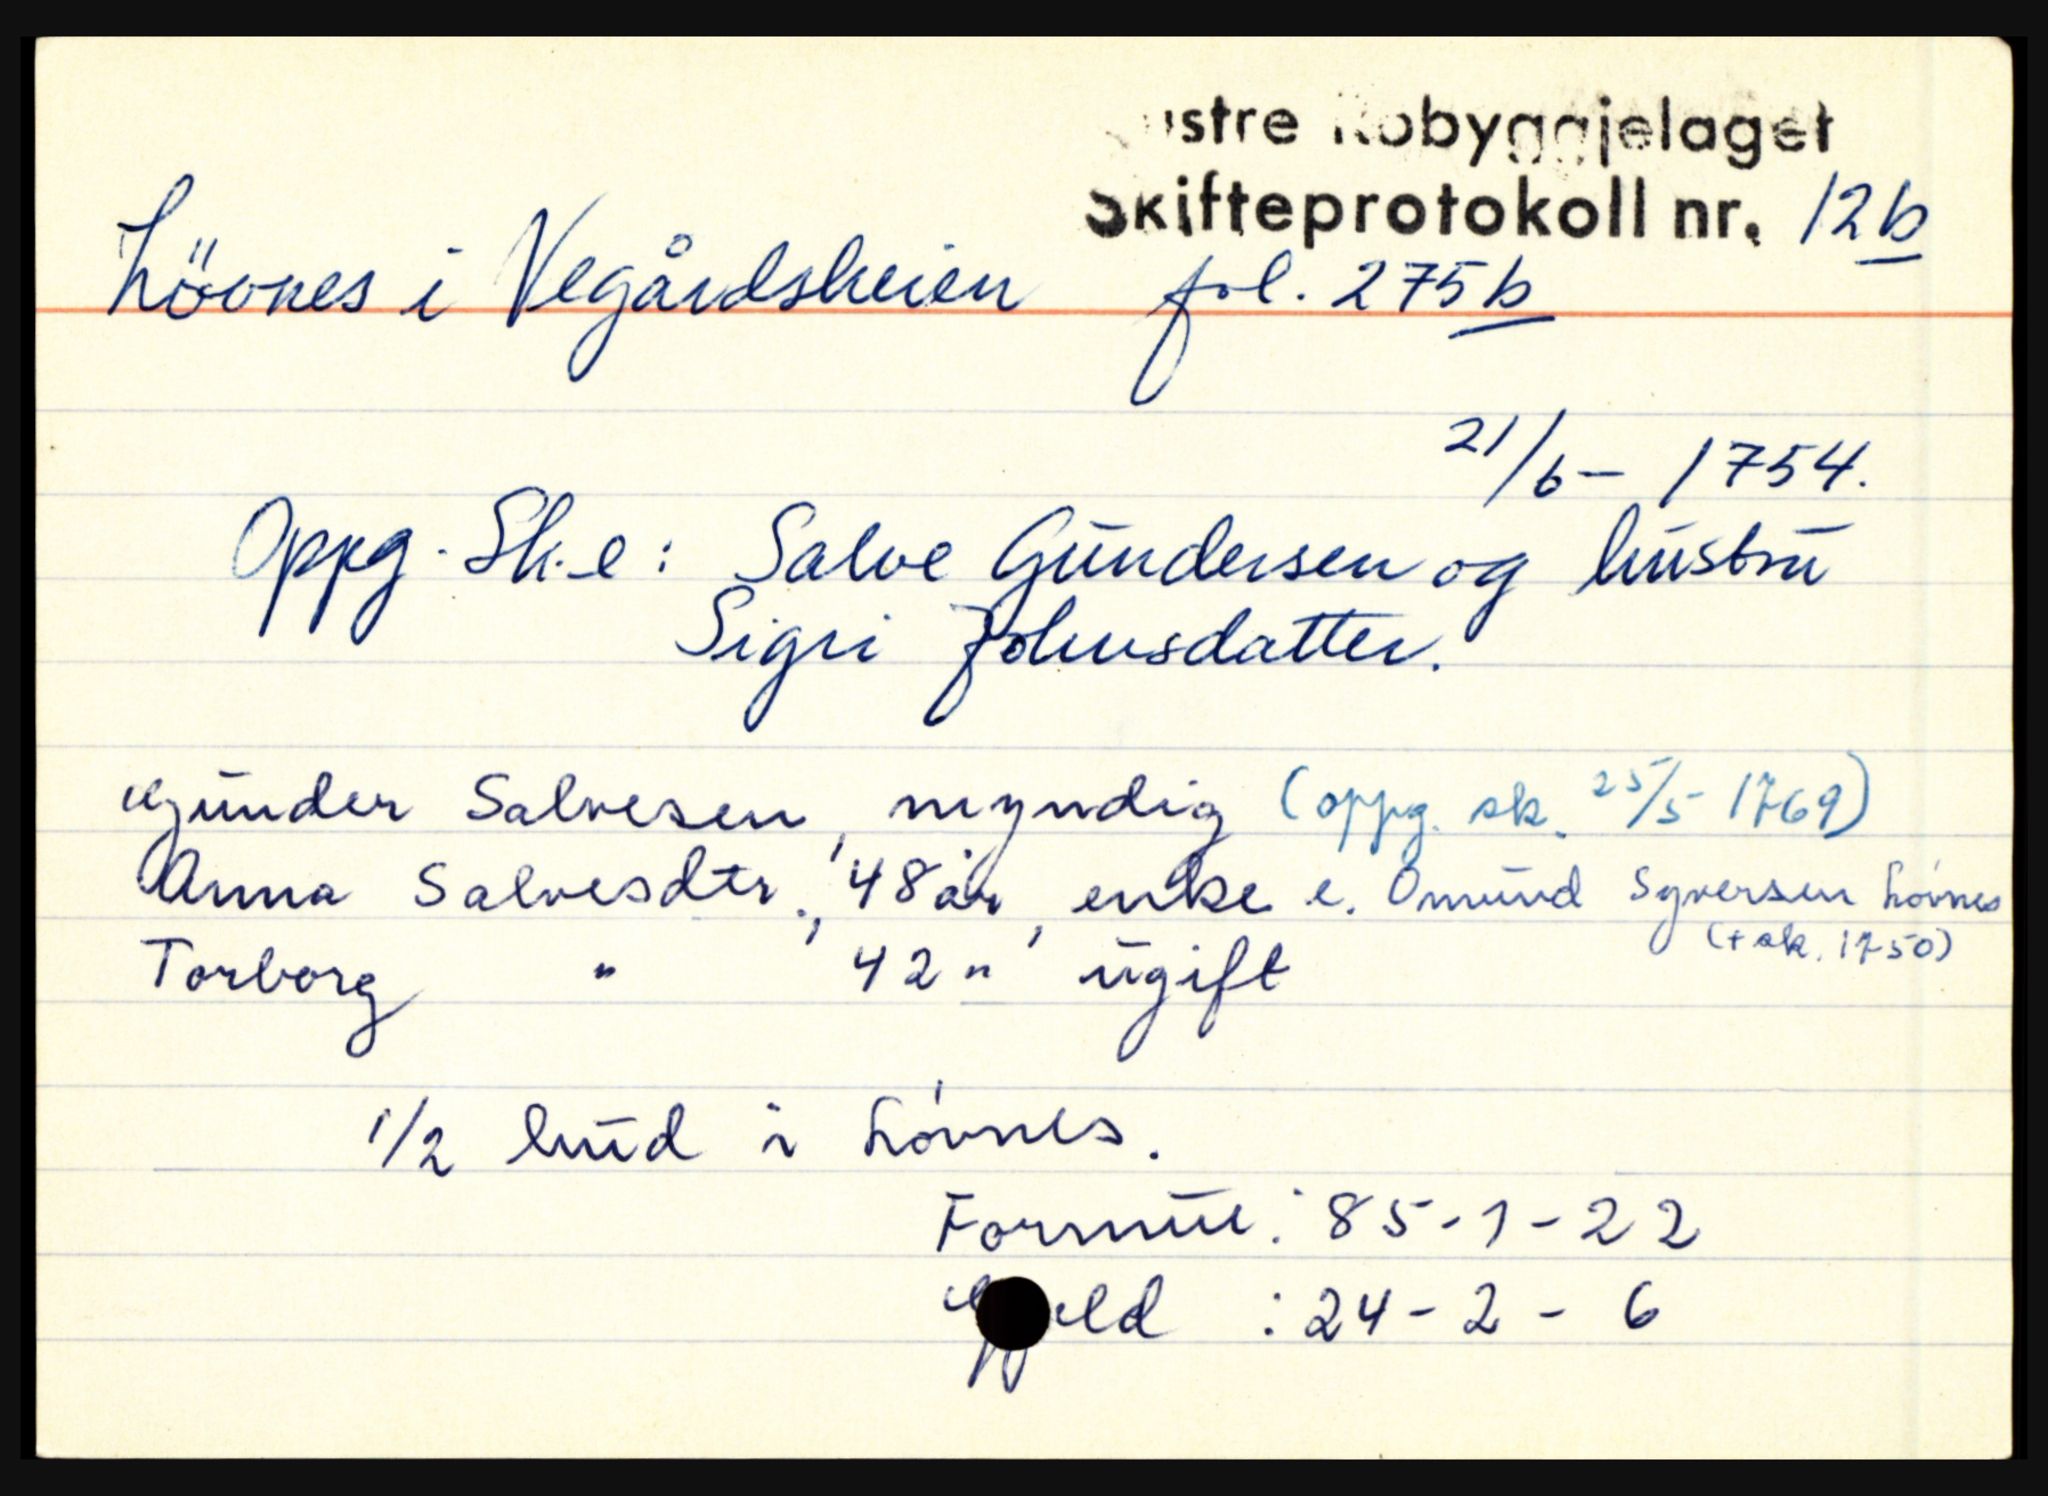 Østre Robyggjelaget
Skifteprotokoll nr. 12b
Lövnes i Vegårdsheien fol. 275b
21/6 - 1754.
Oppg. Sk. e: Salve Gundersen og hustru
Sigri Johnsdatter.
Gunder Salvesen, myndig (oppg. sk. 25/5 1769)
Anna Salvesdtr., 48 år, enke e. Omund Syversen Lóvnes
(+ sk. 1750)
Torborg " , 42 " , ugift
1/2 hud i Lóvnes.
Formue: 85-1-22
Gjeld : 24-2-6